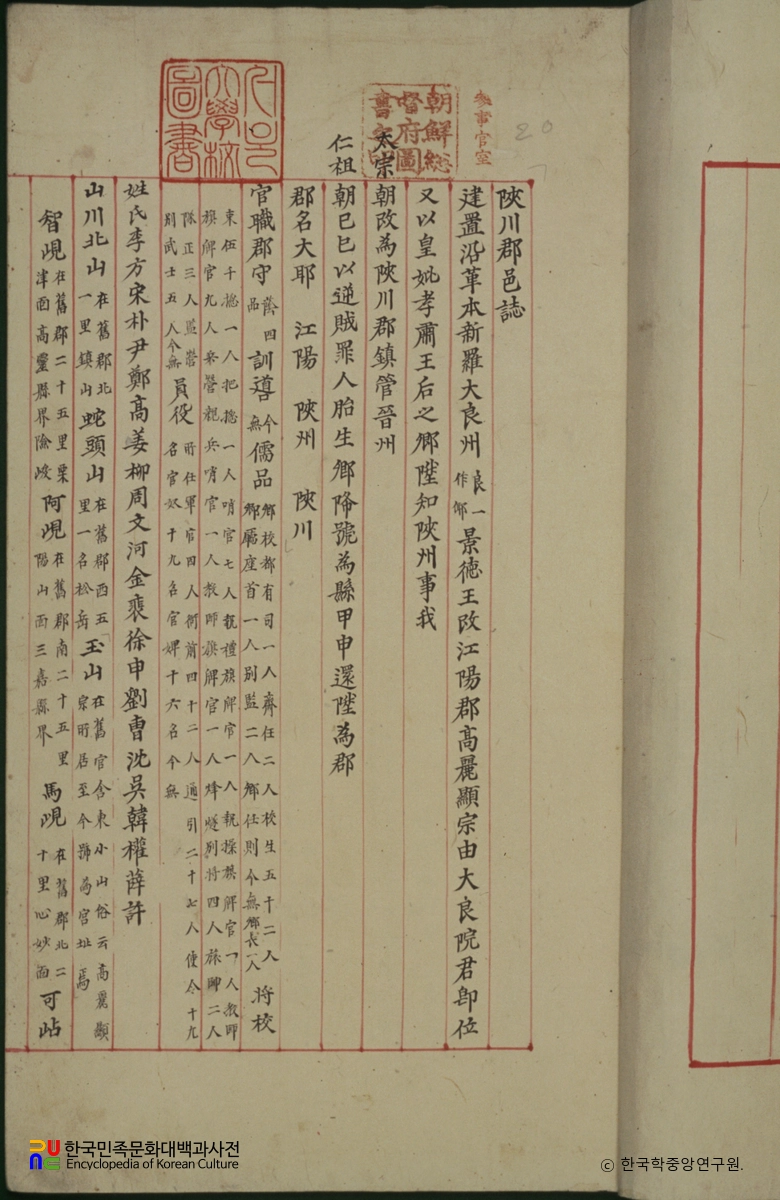 陜川郡邑誌
建置沿革本新羅大良州良一作郍景德王改江陽郡高麗顯宗由大良院君卽位
又以皇妣孝肅王后之鄕陞知陜州事我
太宗朝改為陜川郡鎮管晉州
仁祖朝己巳以逆賊罪人胎生鄕降號為縣甲申還陞為郡
郡名大耶 江陽 陜州 陜川
官職郡守蔭四品訓導今無儒品鄕校都有司一人齋任二人校生五十二人鄕廳座首一人別監二人鄕任則今無鄕長一人將校
束伍千摠一人把摠一人哨官七人執禮旗牌官一人執操旗牌官一人敎師旗牌官九人兵營親兵哨官一人敎師旗牌官一人烽燧別將四人旅帥二人
隊正三人監營別武士五人今無員役所任軍官四人衙前四十二人通引二十七人使令十九名官奴十九名官婢十六名今無
姓氏李方宋朴尹鄭高姜柳周文河金裵徐申劉曺沈吳韓權薛許
山川北山在舊郡北一里鎮山蛇頭山在舊郡西五里一名松岳玉山在舊官舍東小山俗云高麗顯宗所居至今號為宮址焉
智峴在舊郡二十五里栗津面高靈縣界險峻阿峴在舊郡南二十五里陽山面三嘉縣界馬峴在舊郡北二十里心妙面可岾
參事官室
朝鮮總督府圖書之印
大學校圖書
20
한국민족문화대백과사전
Encyclopedia of Korean Culture
ⓒ 한국학중앙연구원.